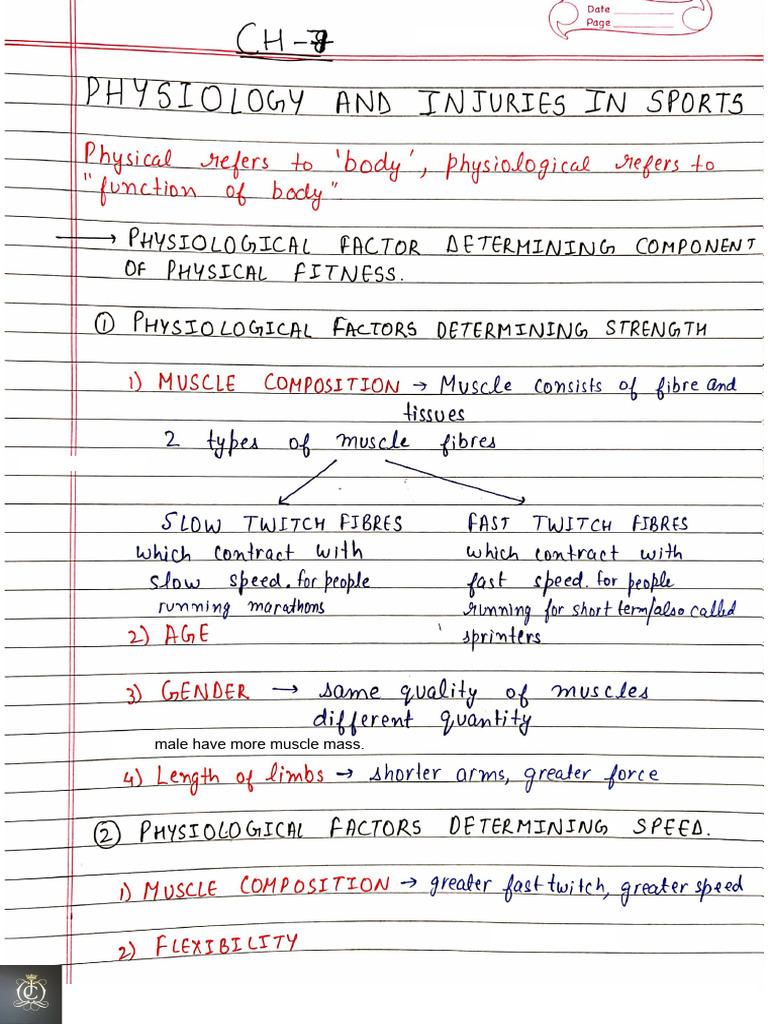 Date
Page
CH-7
PHYSIOLOGY AND INJURIES IN SPORTS
Physical refers to 'body', physiological refers to
"function of body"
→ PHYSIOLOGICAL FACTOR DETERMINING COMPONENT
OF PHYSICAL FITNESS.
① PHYSIOLOGICAL FACTORS DETERMINING STRENGTH
1) MUSCLE COMPOSITION → Muscle consists of fibre and
tissues
2 types of muscle fibres
SLOW TWITCH FIBRES
which contract with
slow speed. for people
running marathons
FAST TWITCH FIBRES
which contract with
fast speed. for people
running for short term/also called
sprinters
2) AGE
3) GENDER → same quality of muscles
different quantity
male have more muscle mass.
4) Length of limbs → shorter arms, greater force
② PHYSIOLOGICAL FACTORS DETERMINING SPEED.
1) MUSCLE COMPOSITION → greater fast twitch, greater speed
2) FLEXIBILITY